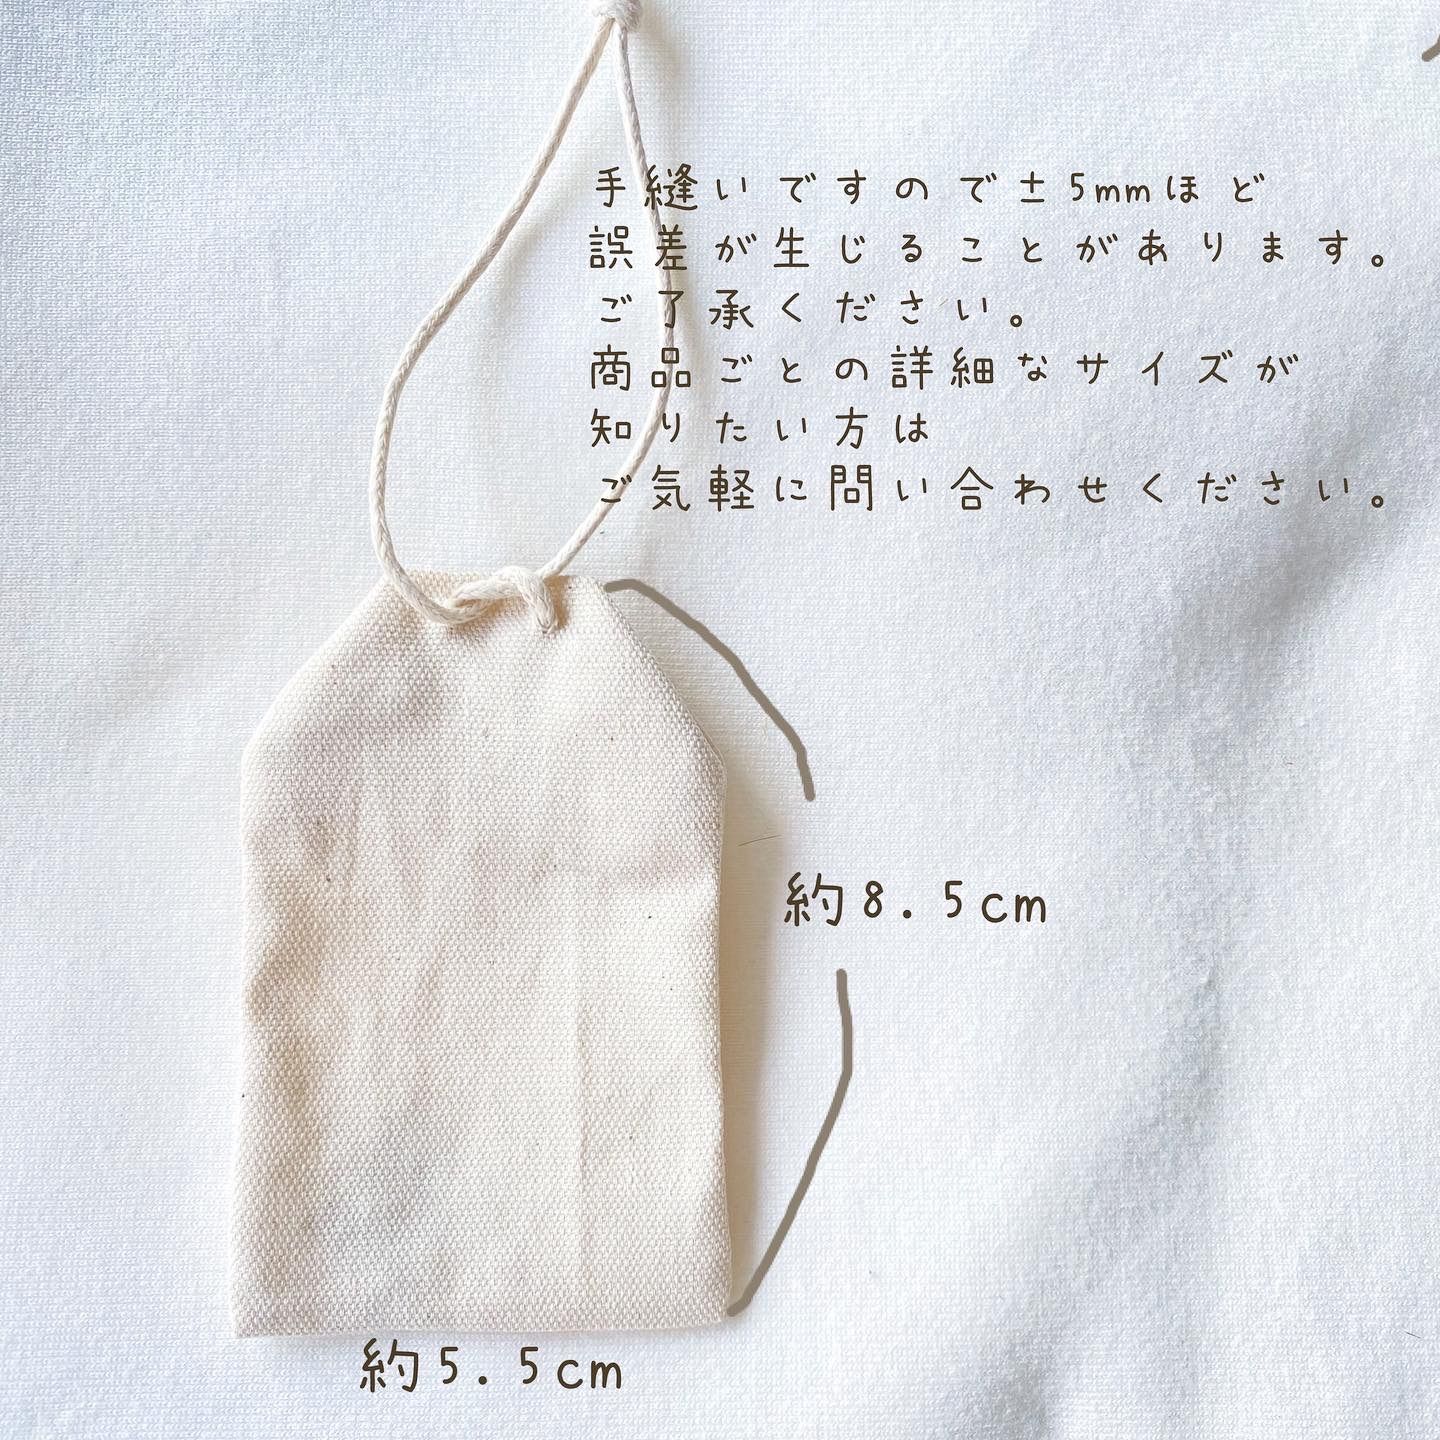 手縫いですので±5mmほど
誤差が生じることがあります。
ご了承ください。
商品ごとの詳細なサイズが
知りたい方は
ご気軽に問い合わせください。
約8.5cm
約5.5cm